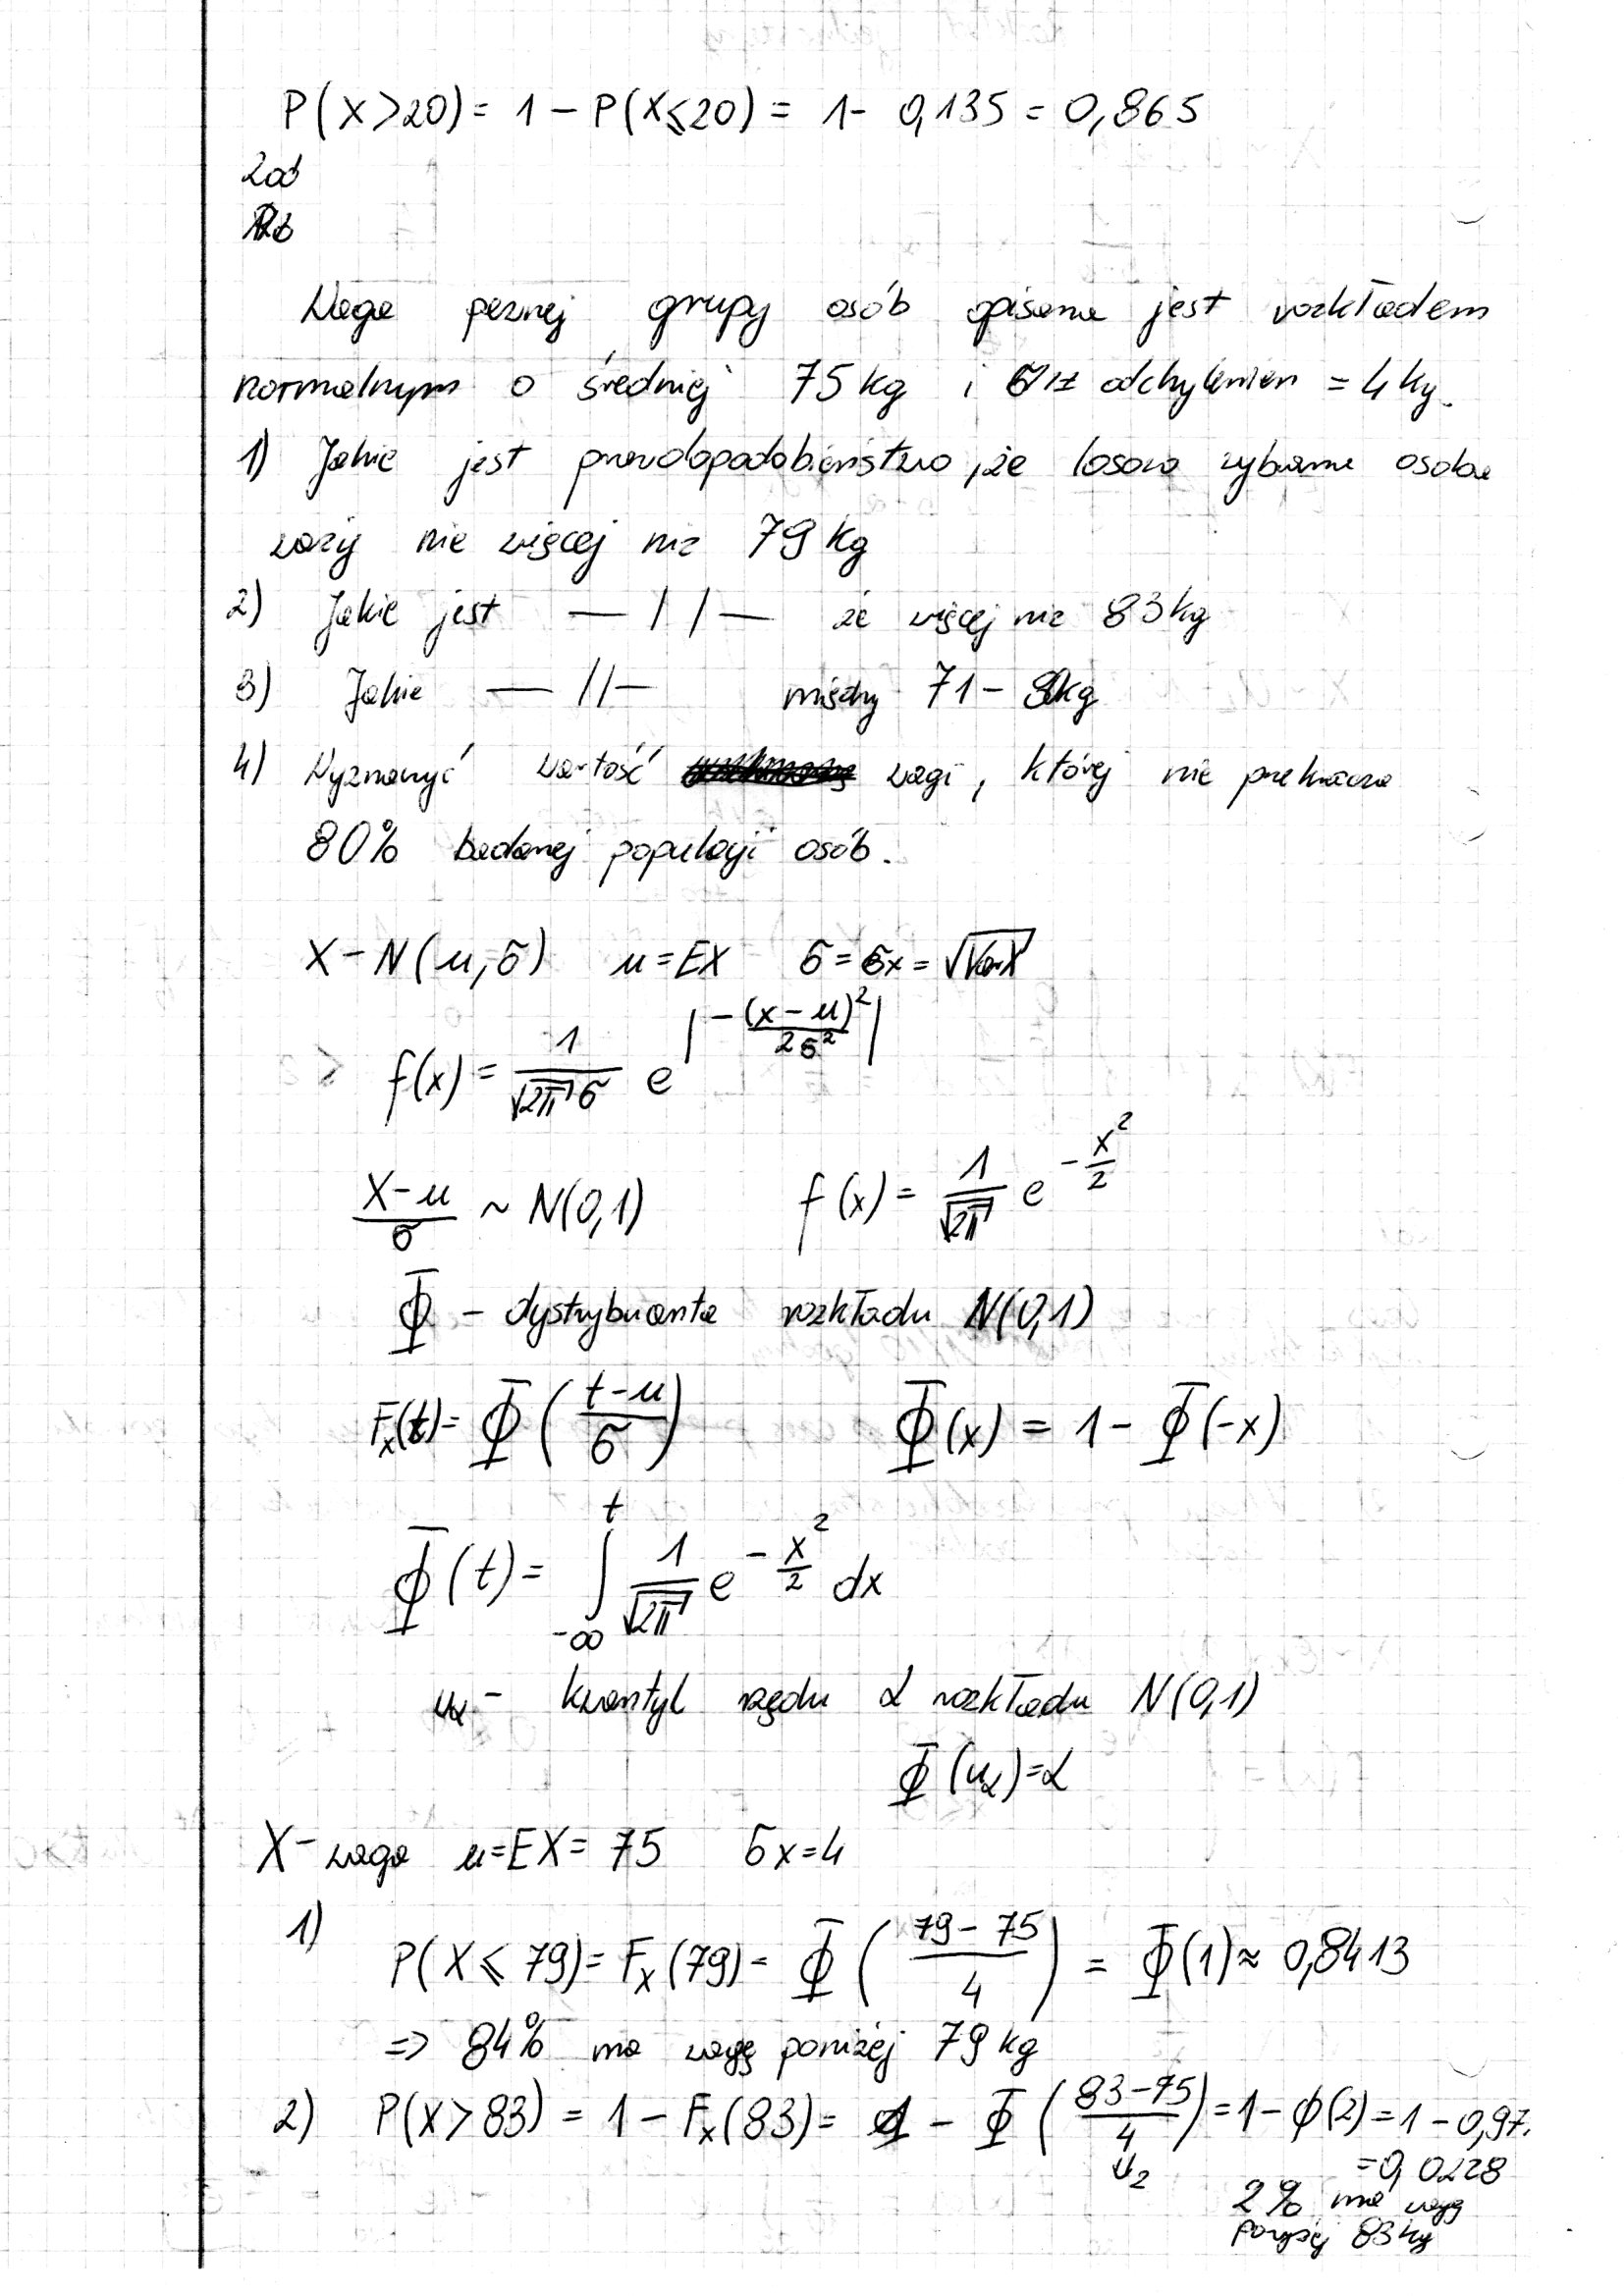 P(X>20) = 1 – P(X≤20) = 1 - 0,135 = 0,865
Zad
Waga pewnej grupy osób opisana jest rozkładem
normalnym o średniej 75 kg i odchyleniem = 4 kg.
1) Jakie jest prawdopodobieństwo, że losowo wybrana osoba
waży nie więcej niż 79 kg
2) Jakie jest —||— że więcej niż 83 kg
3) Jakie —||— między 71 - 80kg
4) Wyznaczyć wartość wagi, której nie przekracza
80% badanej populacji osób.
X – N(μ,σ) μ = EX σ = σx = √VarX
f(x) = 1/(√2π σ) e |-(x-μ)²/2σ²|
(X-μ)/σ ~ N(0,1) f(x) = 1/√2π e^(-x²/2)
Φ – dystrybuanta rozkładu N(0,1)
Fx(t) = Φ((t-μ)/σ) Φ(x) = 1 - Φ(-x)
Φ(t) = ∫_{-∞}^{t} 1/√2π e^(-x²/2) dx
uα – kwantyl rzędu α rozkładu N(0,1)
Φ(uα) = α
X – waga μ = EX = 75 σx = 4
1) P(X ≤ 79) = Fx(79) = Φ((79-75)/4) = Φ(1) ≈ 0,8413
=> 84% ma wagę poniżej 79 kg
2) P(X > 83) = 1 – Fx(83) = 1 – Φ((83-75)/4) = 1 – φ(2) = 1 – 0,97.
= 0,0228
2% ma wagę
powyżej 83 kg